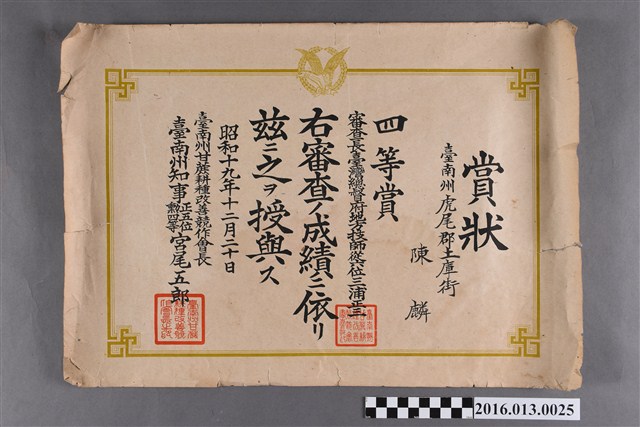 賞狀
臺南州虎尾郡土庫街
陳麟
四等賞
審查長臺灣總督府地方技師從六位三浦
右審查ノ成績ニ依リ
玆ニ之ヲ授與ス
昭和十九年十二月二十日
臺南州甘蔗耕種改善競作會長
臺南州知事正五位勲四等宮尾五郎
2016.013.0025